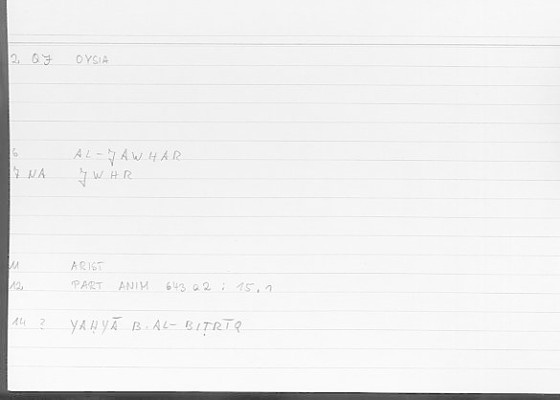 2, QJ OYSIA
6 AL-JAWHAR
7 NA JWHR
11 ARIST
12, PART ANIM 643 a2 : 15,1
14 ? YAḤYĀ B. AL-BIṬRĪQ